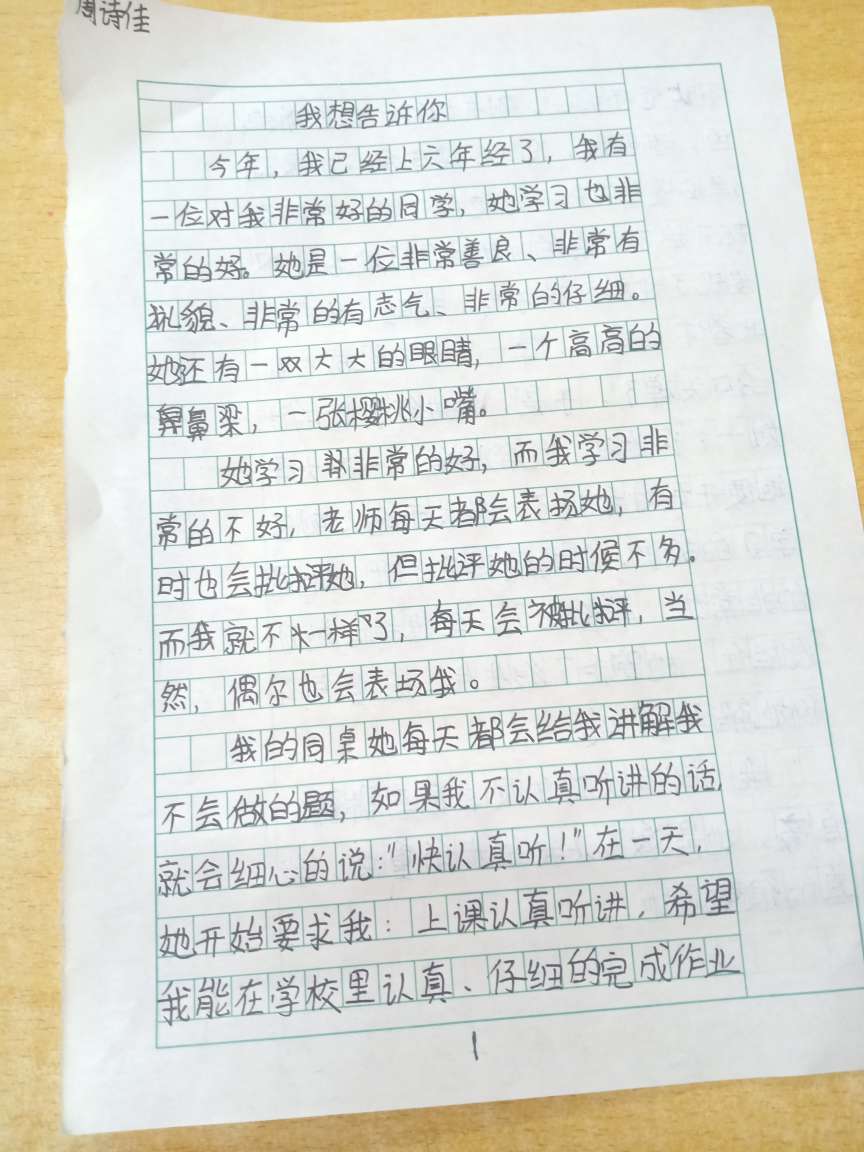 周诗佳
我想告诉你
今年，我已经上六年经了，我有
一位对我非常好的同学，她学习也非
常的好。她是一位非常善良、非常有
礼貌、非常的有志气、非常的仔细。
她还有一双大大的眼睛，一个高高的
鼻梁，一张樱桃小嘴。
她学习非常的好，而我学习非
常的不好，老师每天都会表扬她，有
时也会批评她，但批评她的时候不多。
而我就不一样了，每天会被批评，当
然，偶尔也会表场我。
我的同桌她每天都会给我讲解我
不会做的题，如果我不认真听讲的话，
就会细心的说：“快认真听！”在一天，
她开始要求我：上课认真听讲，希望
我能在学校里认真、仔细的完成作业
1